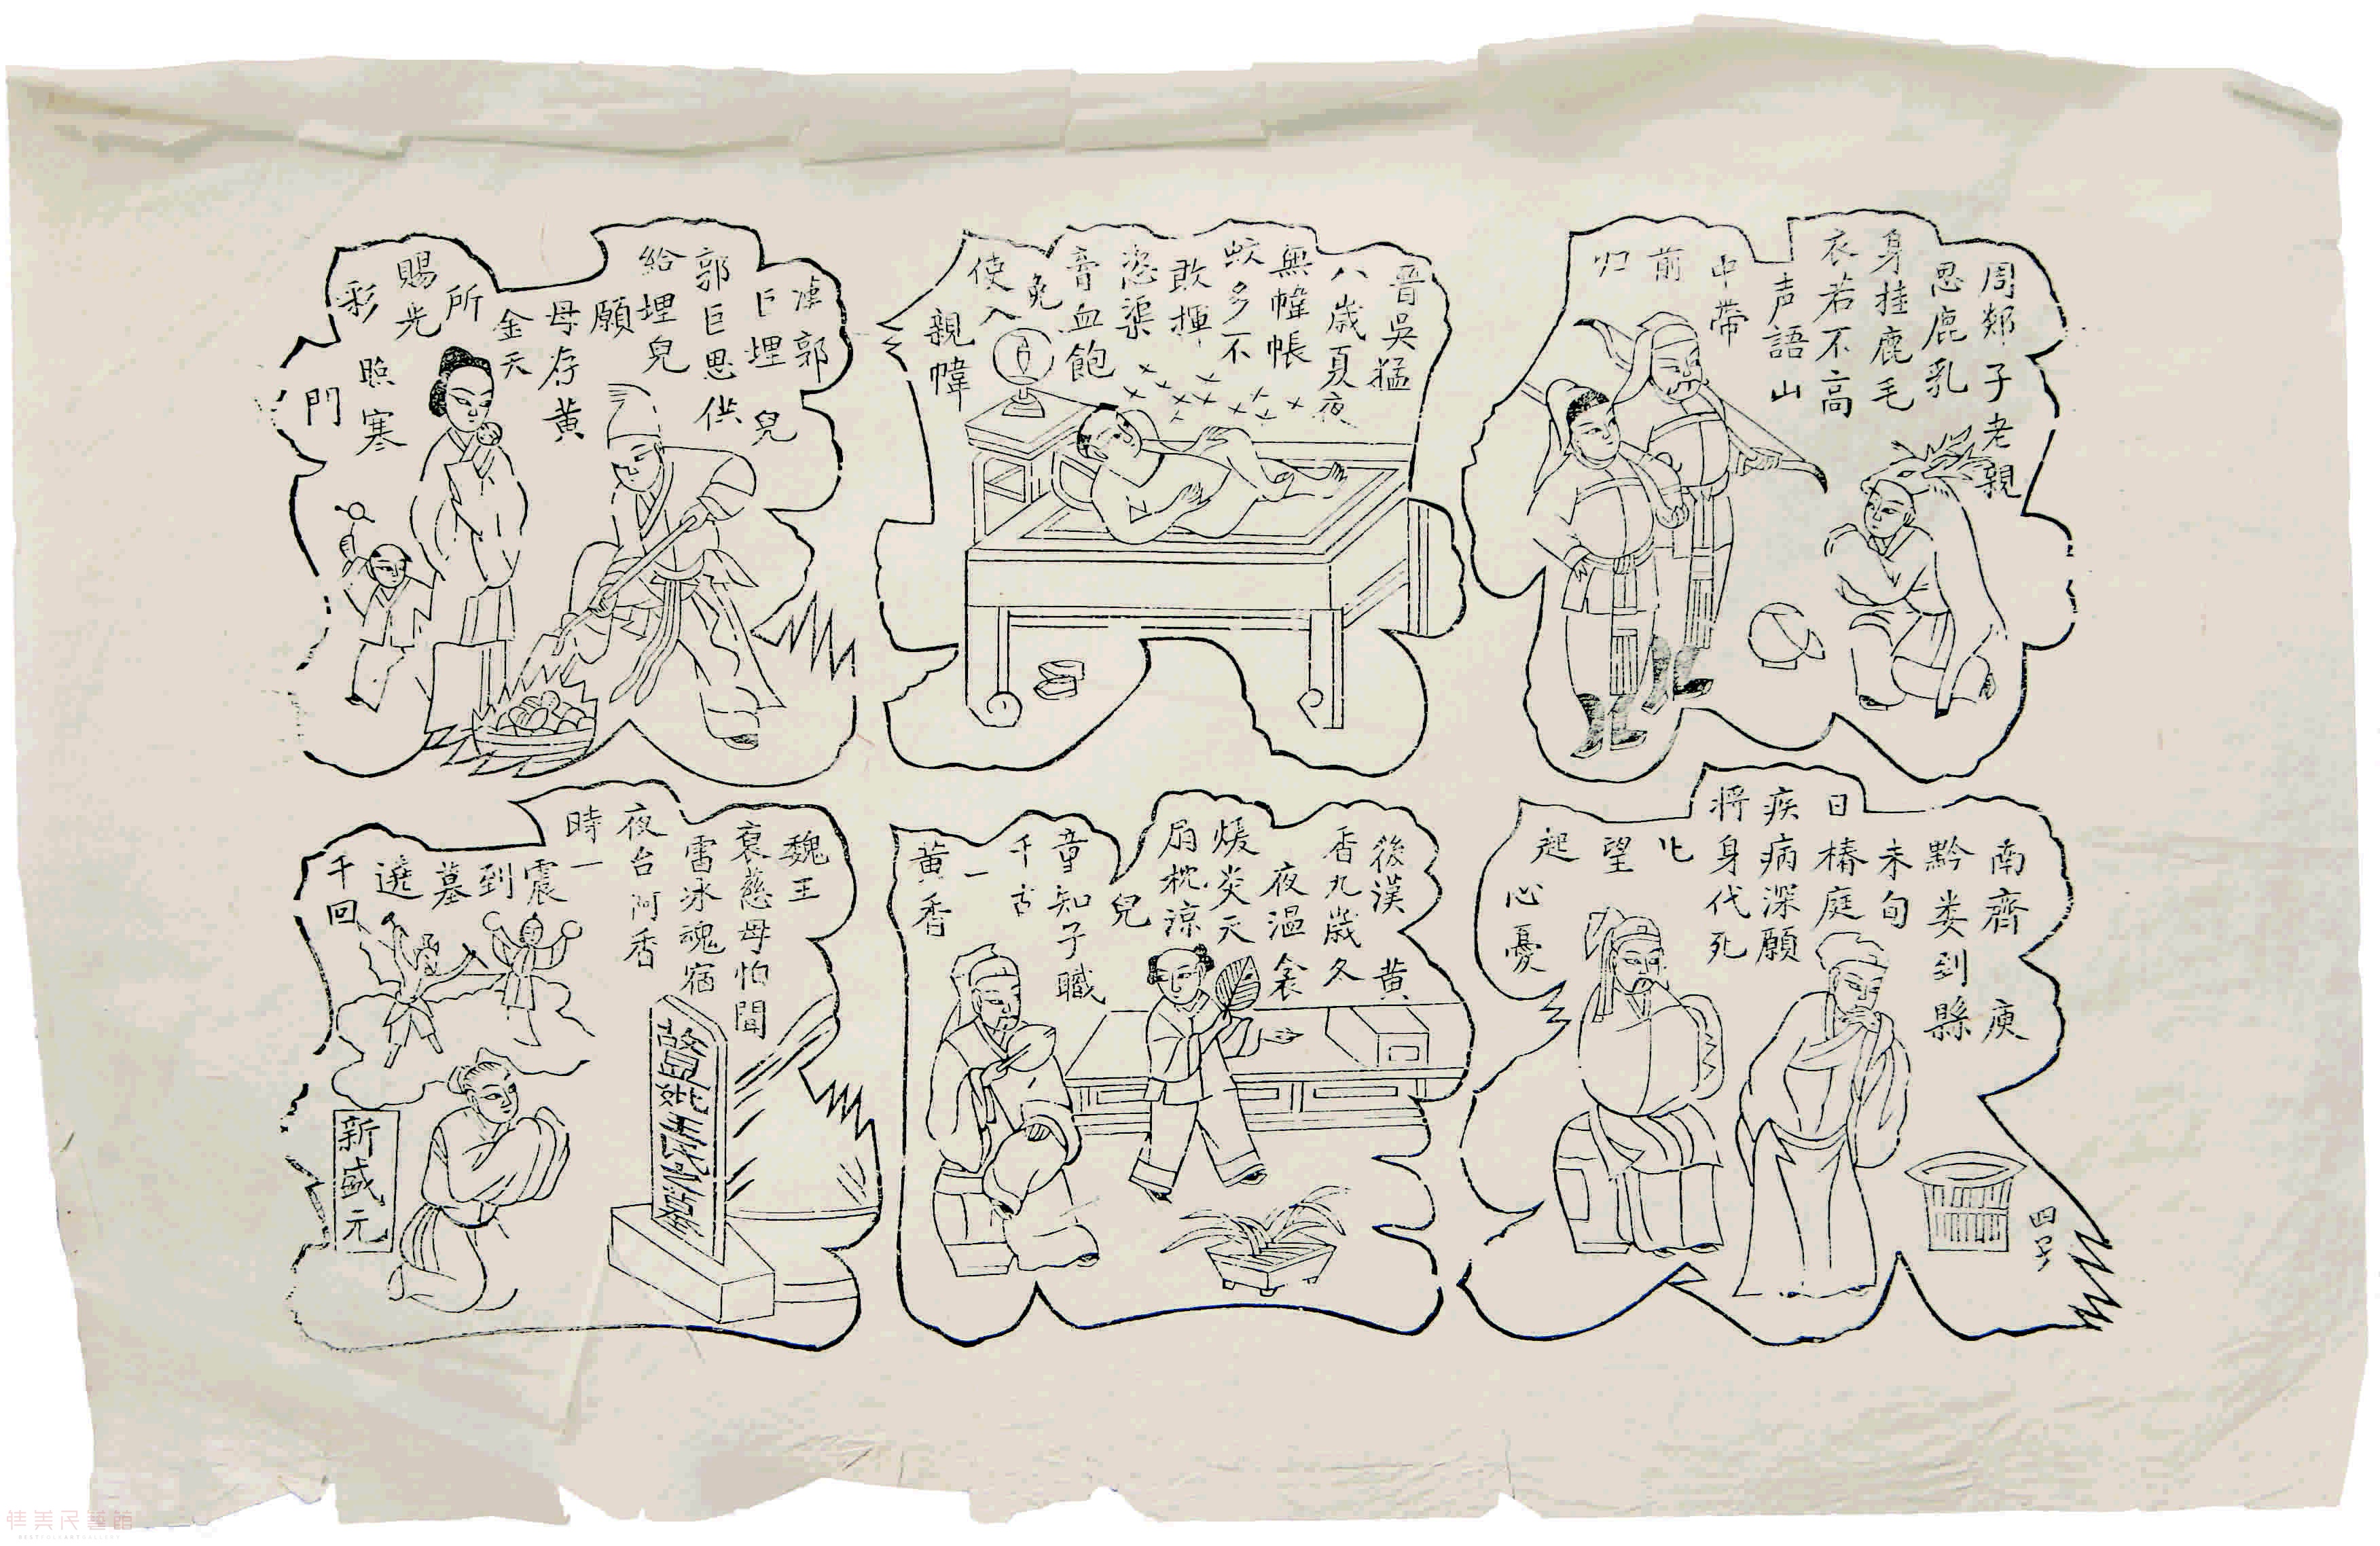 周郯子老親
思鹿乳
身挂鹿毛
衣若不高
声語山
中帶
前
归
晉吳猛
八歳夏夜
無幃帳
蚊多不
敢揮
恣渠
膏血飽
免
使入
親幃
漢郭
巨埋兒
郭巨思供
給埋兒
願
母存黄
金天
所
賜光
照寒
彩
門
南齊庾
黔娄到縣
未旬
日椿庭
疾病深願
將身代死
北
望
起
心憂
後漢黄
香九歳冬
夜温衾
煖炎天
扇枕涼
兒
童知子職
千古
一
黄香
魏王
裒慈母怕聞
雷泳魂宿
夜台阿香
時一
震
到
墓
遶
千回
新盛元